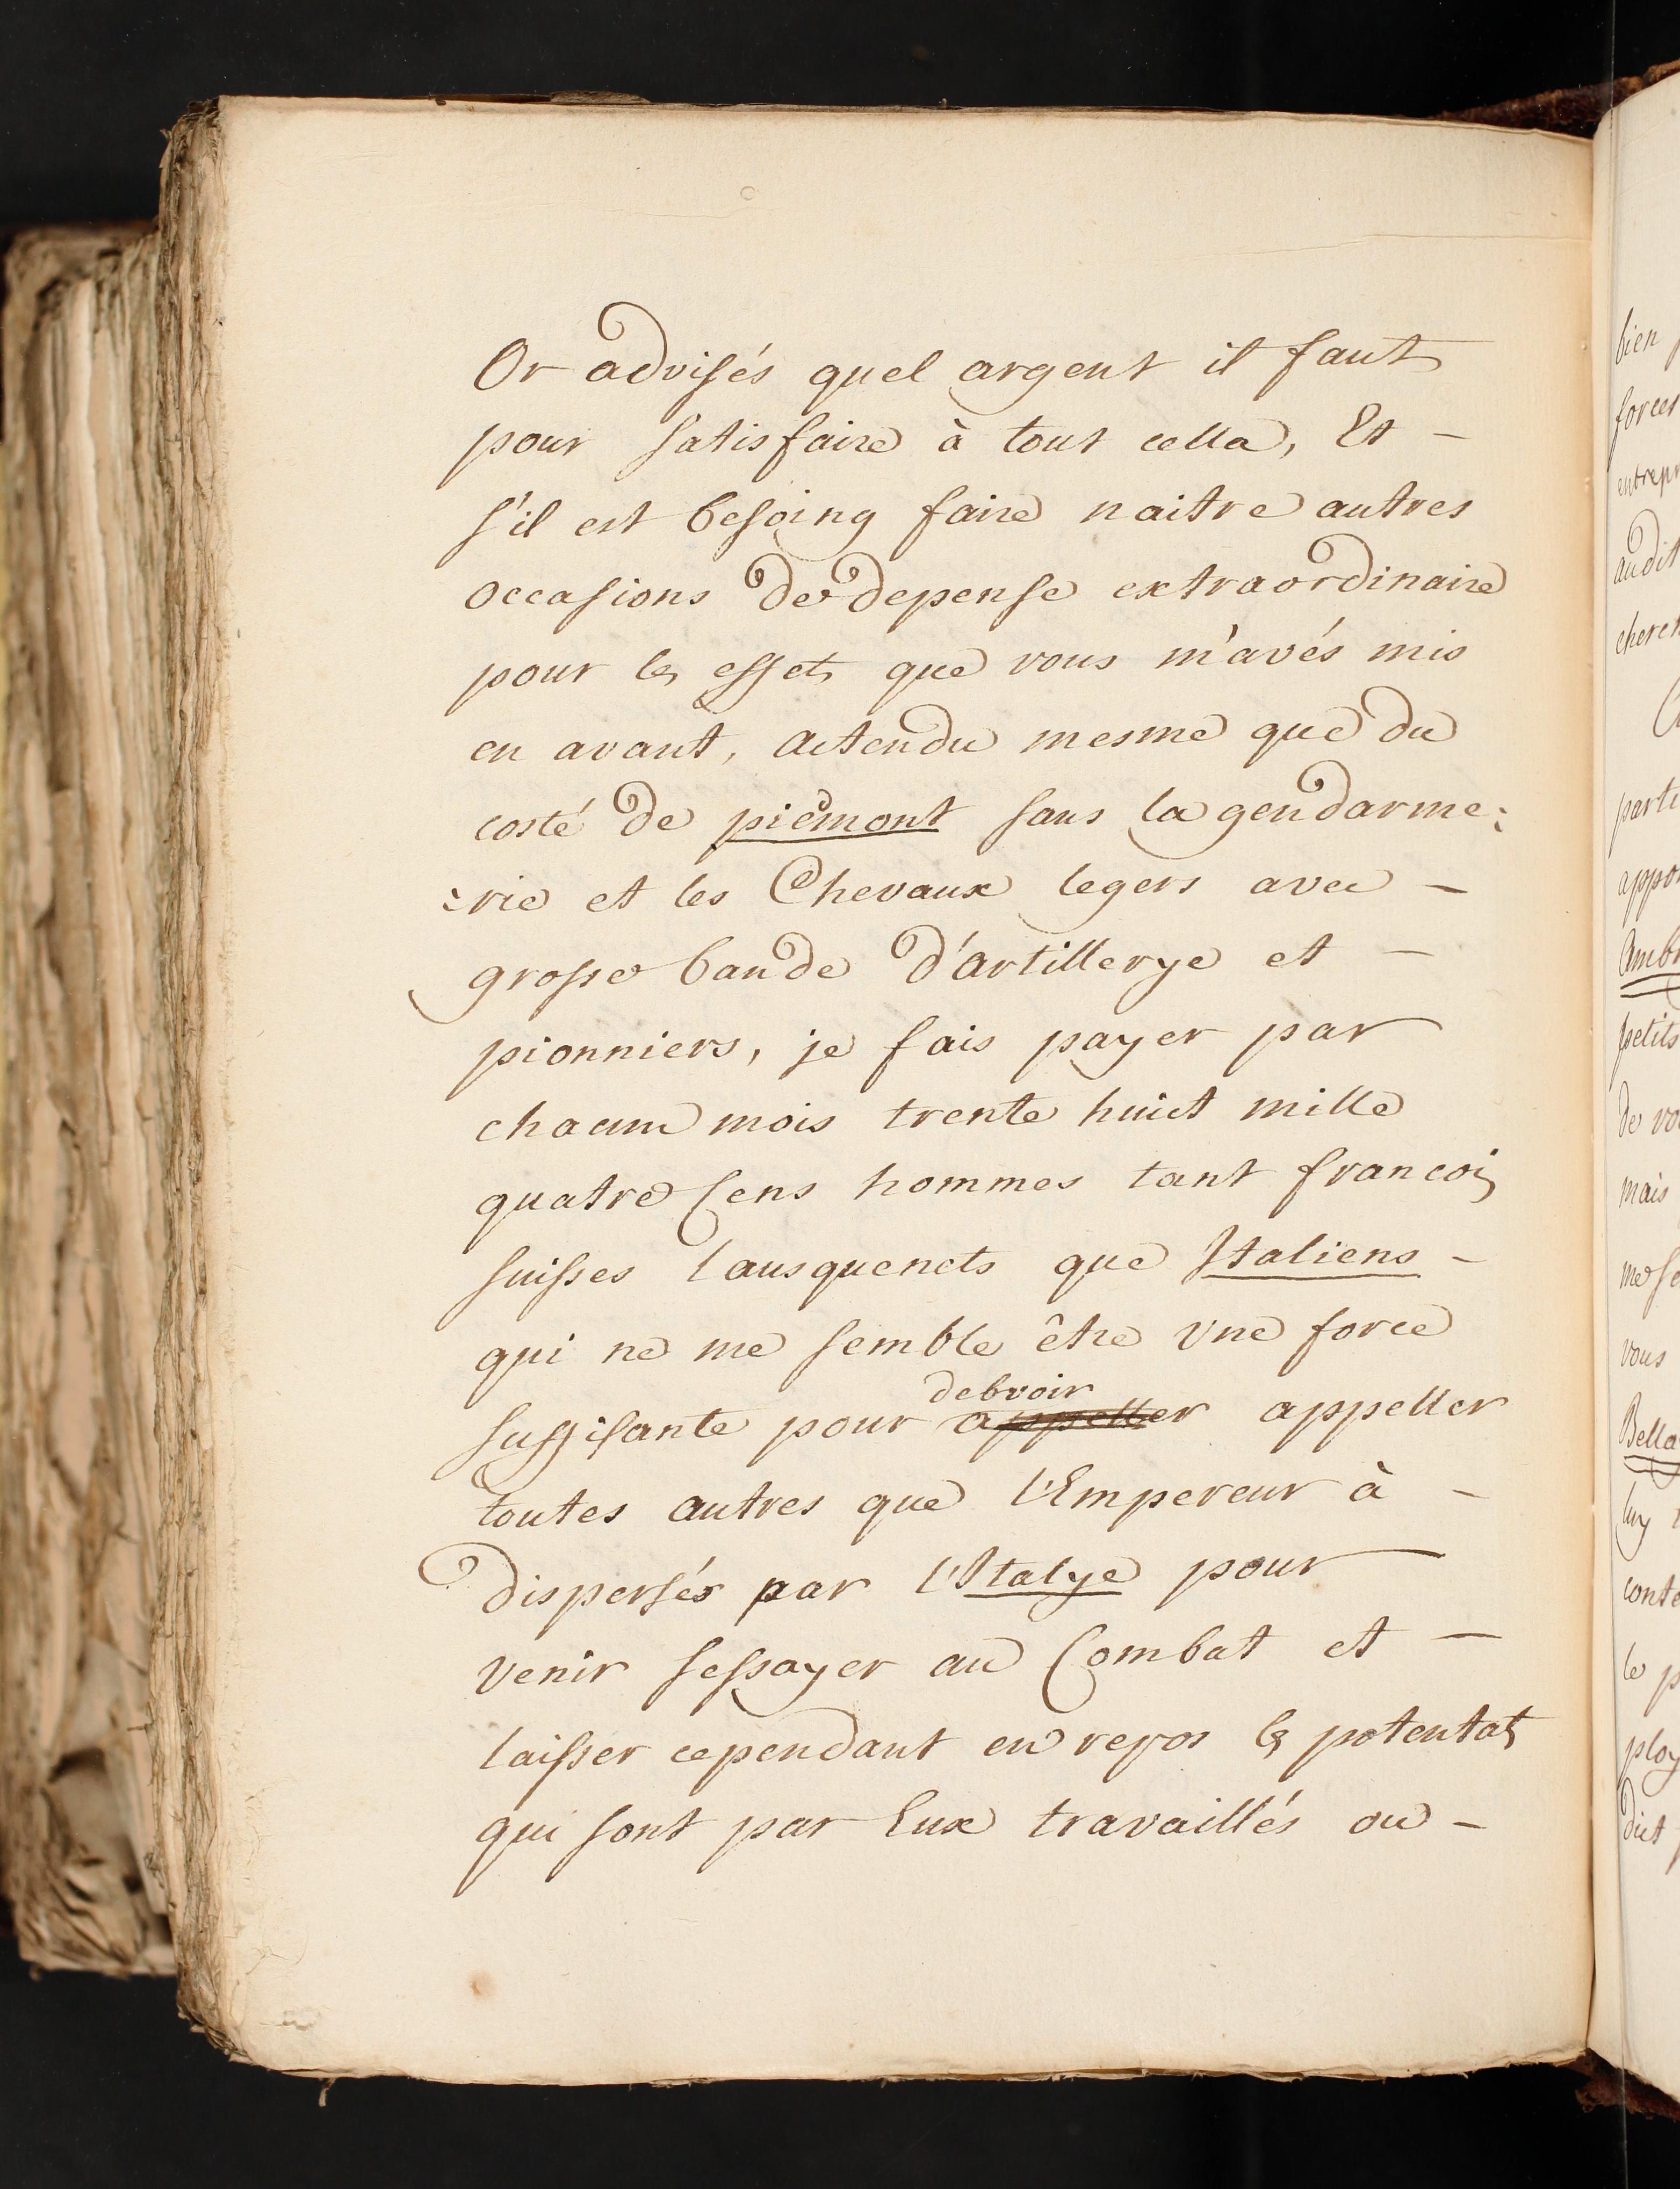 Or advisés quel argent il faut
pour satisfaire à tout cella, Et -
s'il est besoing faire naitre autres
occasions de depense extraordinaire
pour les effets que vous m'avés mis
en avant, actendu mesme que du
costé de piémont sans la gendarme:
:rie et les Chevaux legers avec -
grosse bande d'artillerye et -
pionniers, je fais payer par
chacun mois trente huict mille
quatre Cens hommes tant francois
suisses lansquenets que Italiens -
qui ne me semble être une force
debvoir
suffisante pour appeller appeller
toutes autres que l'Empereur à -
dispersés par l'Italye pour
venir sessayer au Combat et -
laisser cependant en repos les potentats
qui sont par Eux travaillés ou -
bien
forces
audit
parti
petits
de vo
mais
vous
Bella
luy
conte
le p
ploy
dict